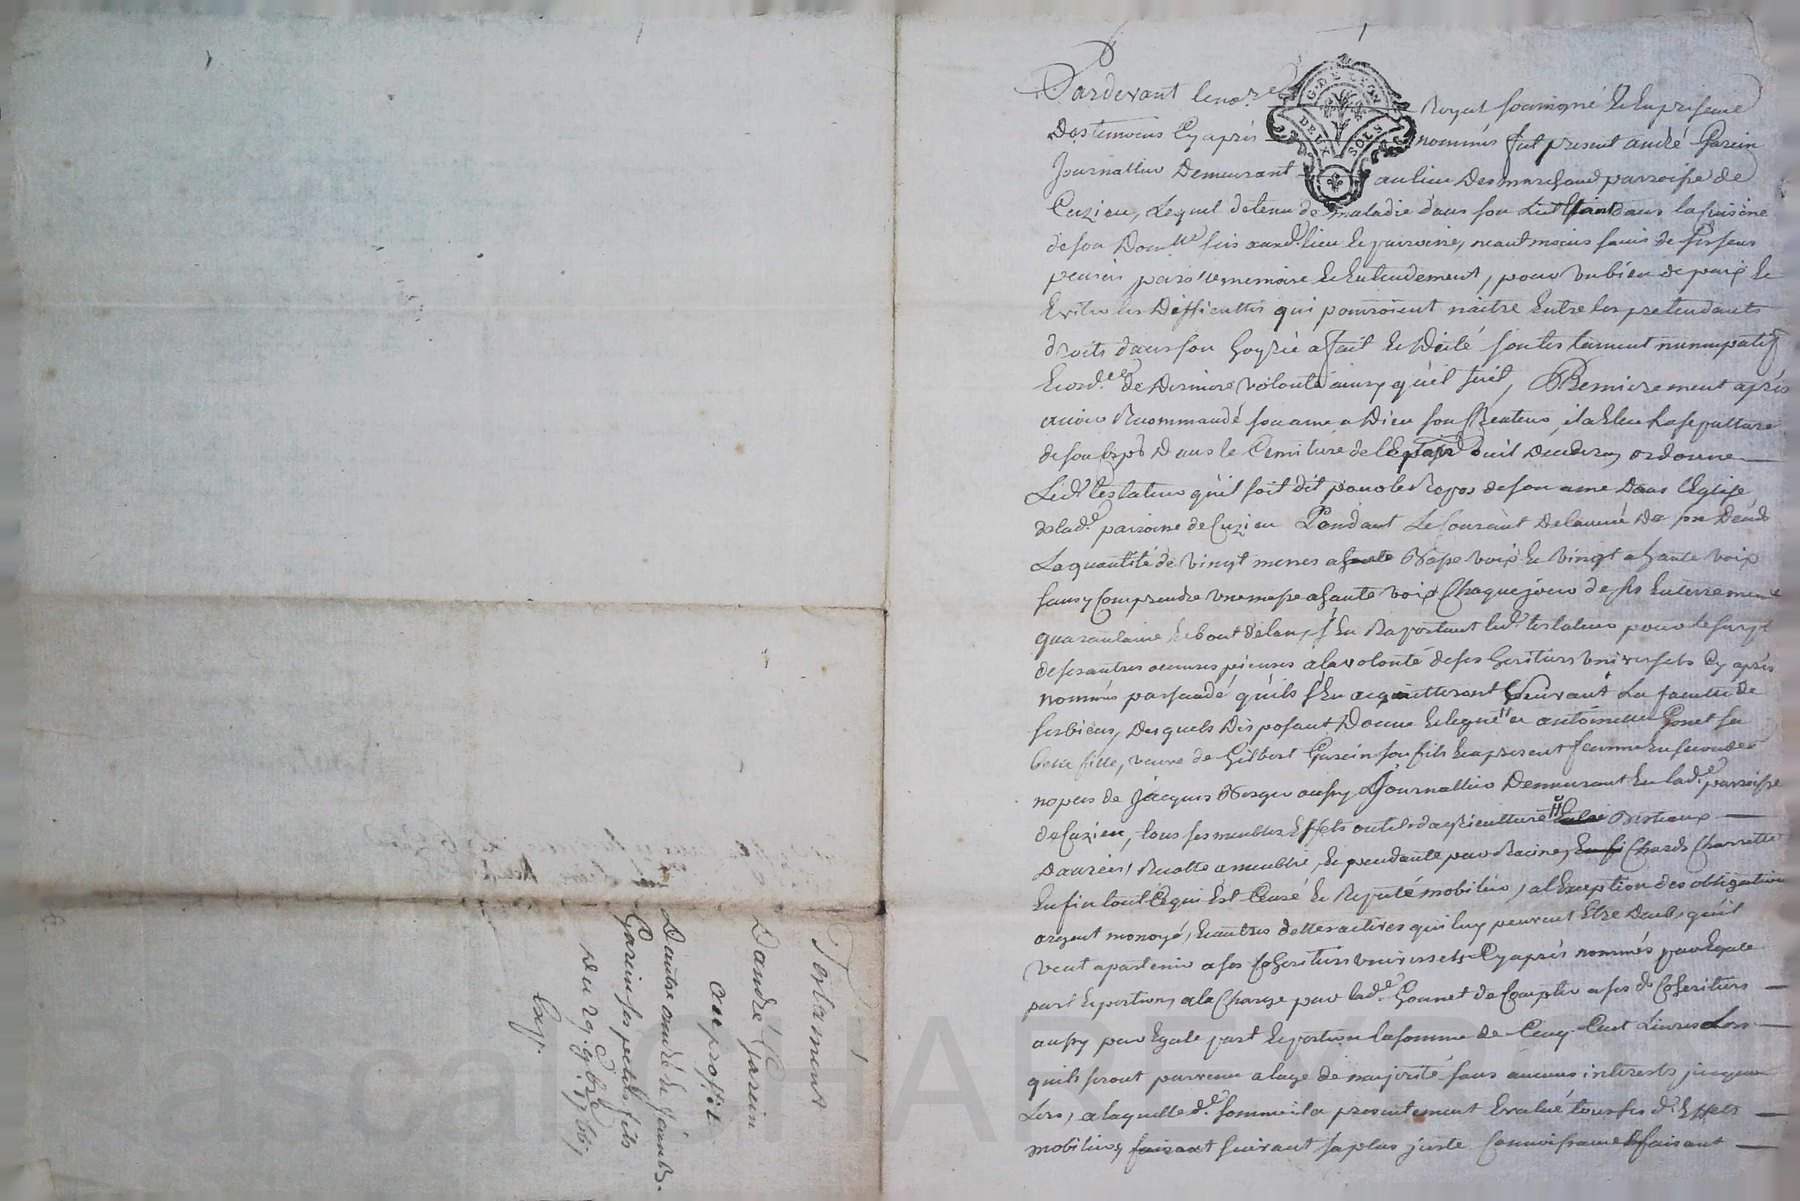 Testament
D'andré Garcin
au profit
D'autre andré & Jâimes
Garcin ses petits fils
Du 29e 9bre 1766
Exp.
G. DE LYON
DEUX SOLS
Pardevant le nore Royal soussigné & En presence
Des temoins Cy après nommés fut present andré Garcin
Journallier Demeurant au lieu Des marchand parroisse de
Cuzieu, Lequel detenu de maladie dans son Lit Etant dans la cuisine
de son Domlle sis aud. lieu & parroisse, neantmoins sain de ses sens
pensée, parolle memoire & Entendement, pour un bien de paix &
Eviter les Difficultés qui pourroient naitre Entre les pretendants
droits dans son hoyrie a fait & Dicté son testament nuncupatif
& ord.ce de Derniere volonté ainsy qu'il suit, Premierement après
avoir Recommandé son ame a Dieu son Createur, il a Elu la sepulture
de son Corps Dans le Cemitiere de ou il Deceder, ordonne
Led. testateur qu'il soit dit pour le Repos de son ame Dans l'Eglise
de lad.e parroisse de Cuzieu Pendant Le Courant De l'année De son Decès
La quantité de vingt messes a Basse voix & vingt a haute voix
sans y Comprendre une messe a haute voix Chaque jour de ses Enterrement
quarantaine & bout de l'an, s'En Raportant led. testateur pour le surplus
de ses autres oeuvres pieuses a la volonté de ses heritiers universels Cy après
nommés persuadé qu'ils s'En acquitteront suivant La faculté de
ses biens, Desquels Disposant Donne & legue a antoinette Gonet sa
belle fille, veuve de Gilbert Garcin son fils & a present femme En secondes
nopces de Jacques Berger aussy Journallier Demeurant En lad.e parroisse
de Cuzieu, tous ses meubles Effets outils d'agriculture Bestiaux
Danrées, Recolte ameublie, & pendante par Racines, Chards Charrette
Enfin tout Ce qui Est Censé & Reputé mobilier, a l'Exception des obligations
argent monoyé, & autres dettes actives qui luy peuvent Etre Deub, qu'il
veut apartenir a ses Coheritiers universels Cy après nommés par Egale
part & portion, a la Charge par lad.e Gonnet de Compter a ses d. Coheritiers
aussy par Egale part & portion la somme de Cinq Cent Livres Lors
qu'ils seront parvenu a l'age de majorité sans aucuns interests jusques a
Lors, a laquelle d.e somme il a presentement Evalué tous ses d. Effets
mobiliers, suivant sa plus juste Connoissance faisant